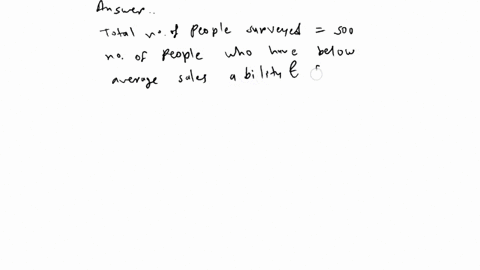 Answer..
Total no. of People surveyed = 500
no. of People who have below
average sales ability &